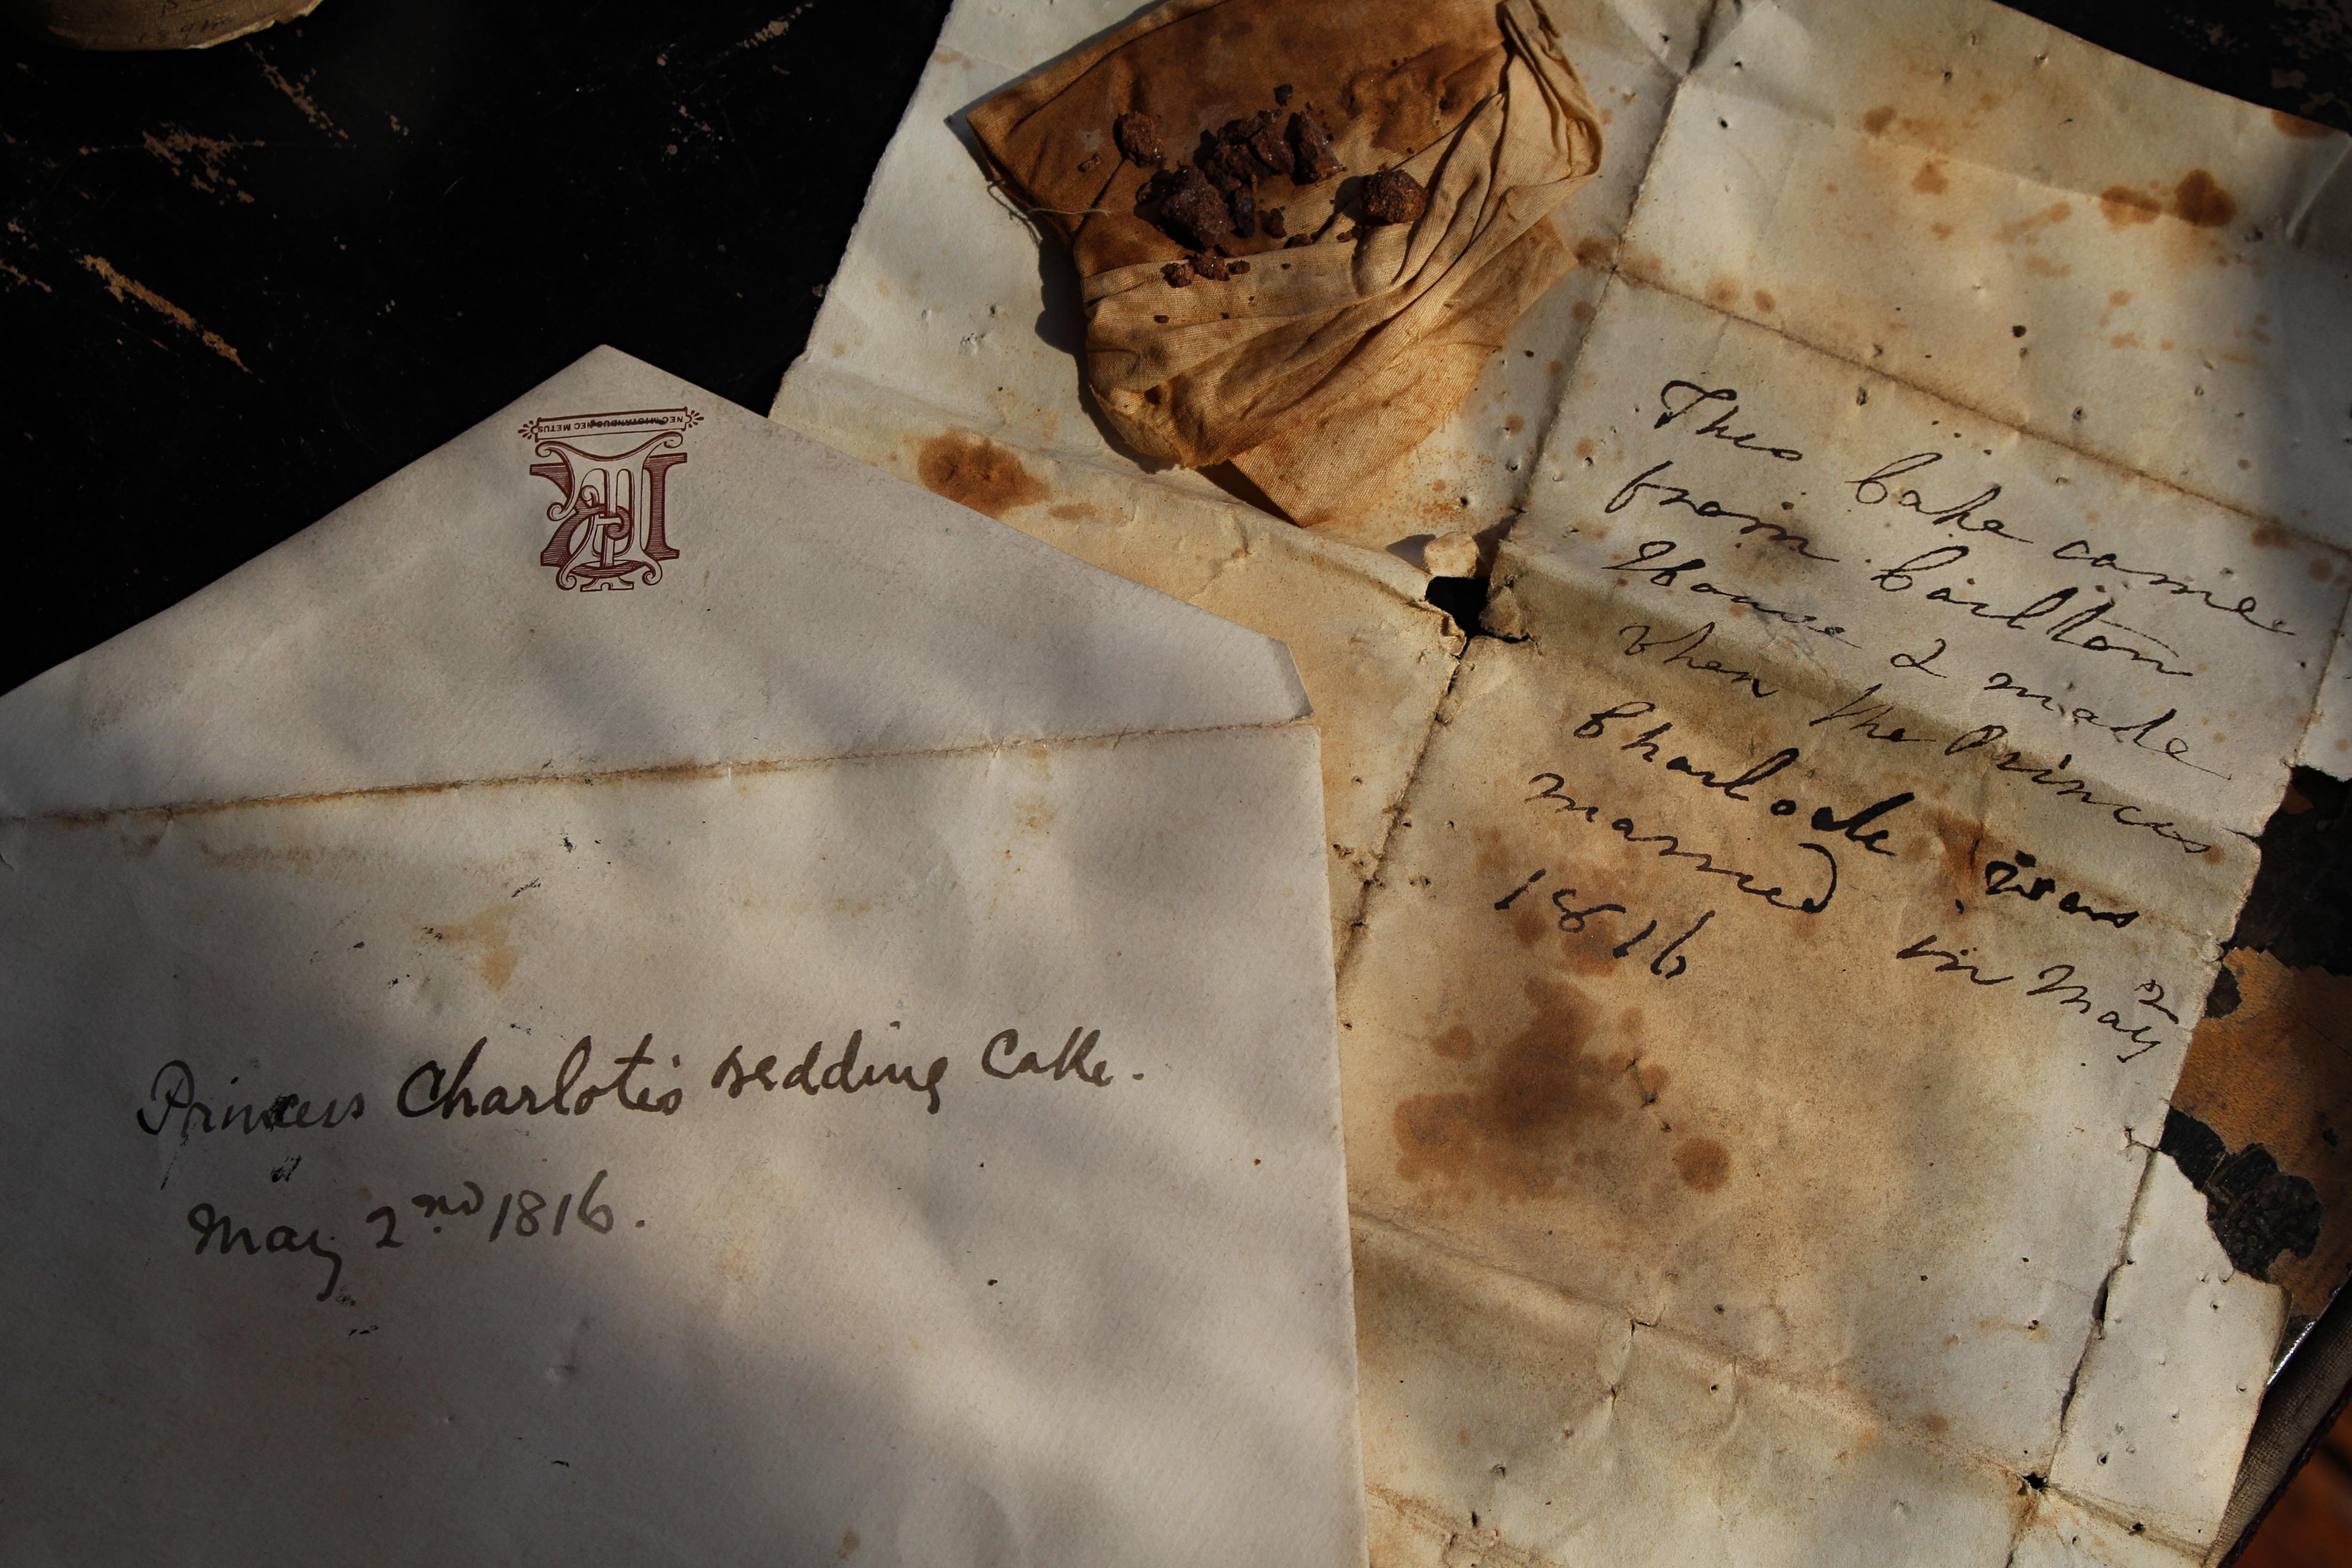 NEC MIGTANDUS NEC METUS
This Cake came
from Carlton
House & made
when the Princess
Charlotte was
married in May 2
1816
Princess Charlottes wedding Cake.
May 2nd 1816.